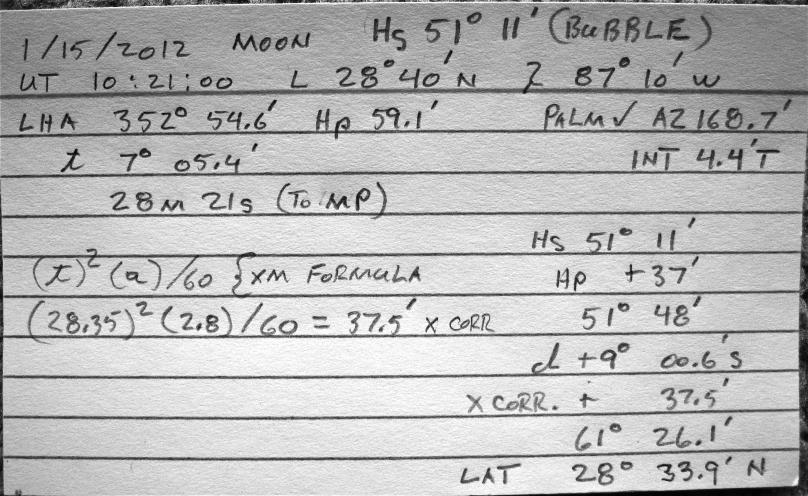 1/15/2012 MOON Hs 51° 11' (BUBBLE)
UT 10:21:00 L 28° 40' N λ 87° 10' W
LHA 352° 54.6' Hp 59.1' PALM√ AZ 168.7'
t 7° 05.4' INT 4.4'T
28M 21s (TO MP)
Hs 51° 11'
(t)² (a)/60 {XM FORMULA Hp +37'
(28.35)² (2.8)/60 = 37.5' X CORR 51° 48'
d +9° 00.6's
X CORR. + 37.5'
61° 26.1'
LAT 28° 33.9' N